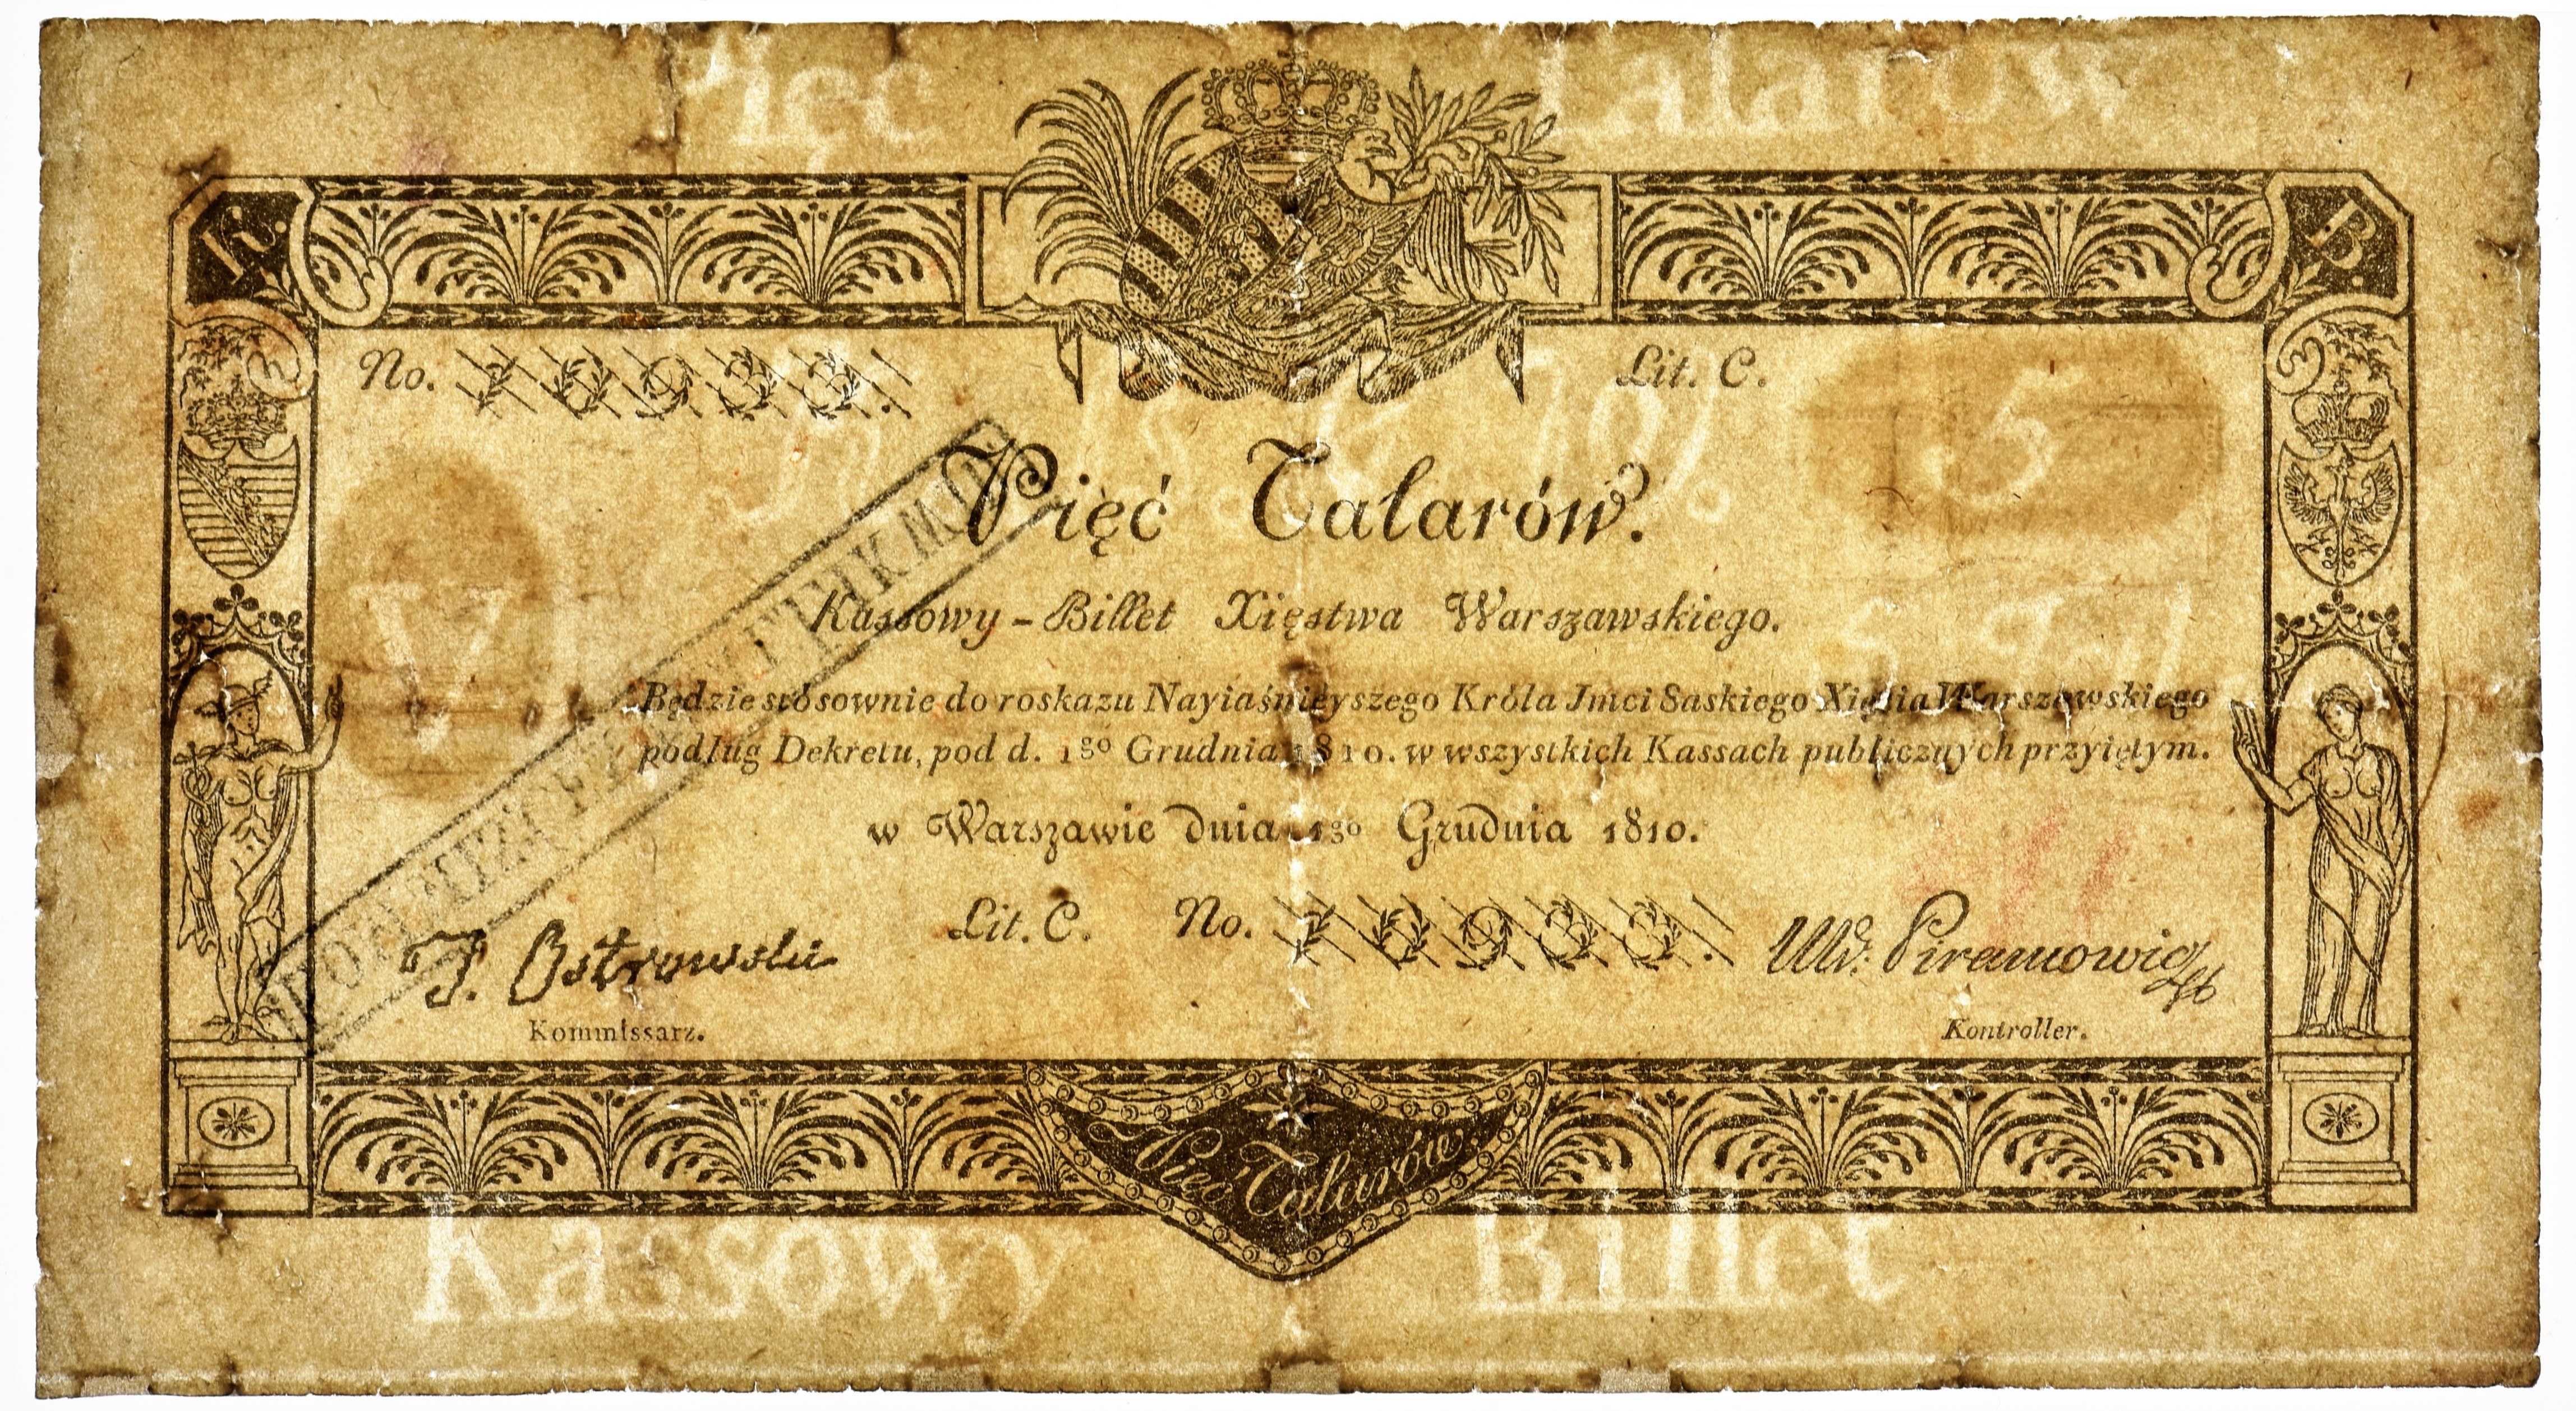 Pięć Talarów
K. B.
No. Lit. C.
Pięć Talarów.
Kassowy - Billet Xięstwa Warszawskiego.
V 5
Będzie stósownie do roskazu Nayiaśnieyszego Króla Jmci Saskiego Xięcia Warszawskiego
podług Dekretu, pod d. 1go Grudnia 1810. w wszystkich Kassach publicznych przyiętym.
w Warszawie dnia 1go Grudnia 1810.
Lit. C. No.
J. Ostrowski Wł. Piramowicz
Kommissarz. Kontroller.
Pięć Talarów.
Kassowy Billet